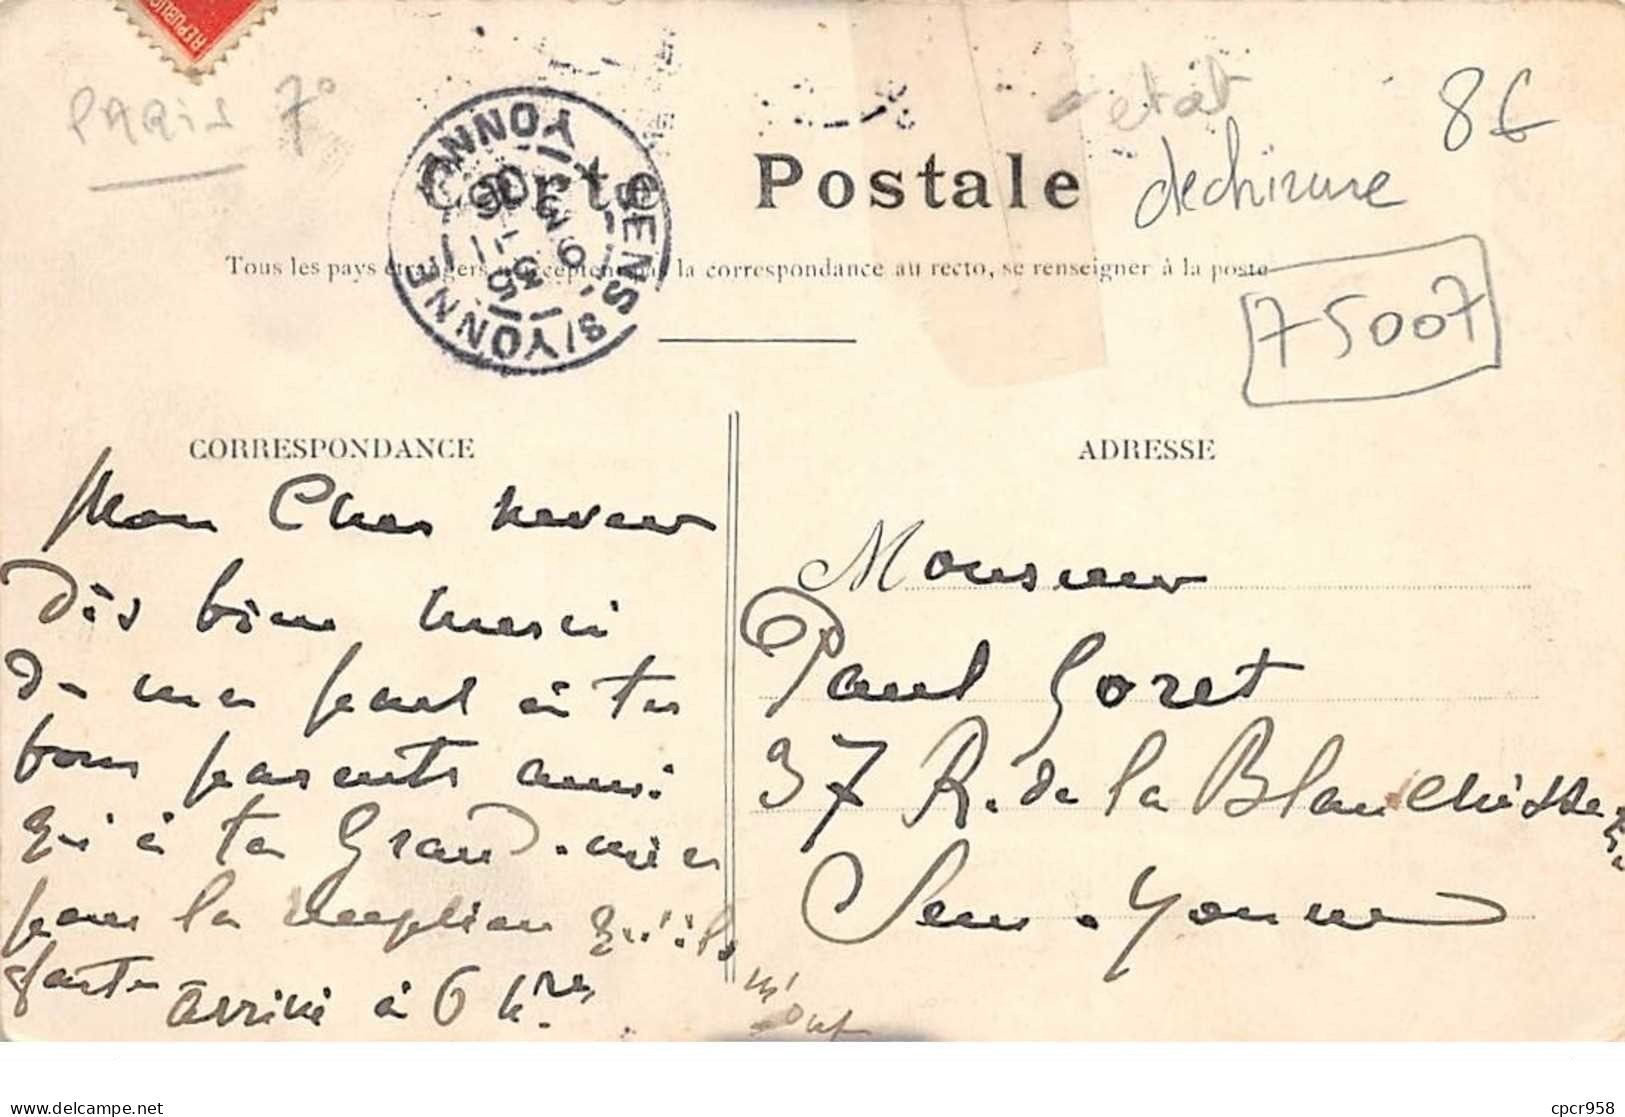 REPUBLIQ
PARIS 7°
état
8€
Carte Postale
dechirure
SENS S/YONNE
YONNE
Tous les pays étrangers n'acceptent pas la correspondance au recto, se renseigner à la poste
75007
CORRESPONDANCE
Mon Cher neveu
Dis bien merci
De ma part à tes
bons parents aussi
qui à ta Grand-mère
pour la reception qu'ils
m'ont
faite Arrivé à 6 hres
ADRESSE
Monsieur
Paul Goret
37 R. de la Blanchisserie
Sens-Yonne
cpcr958